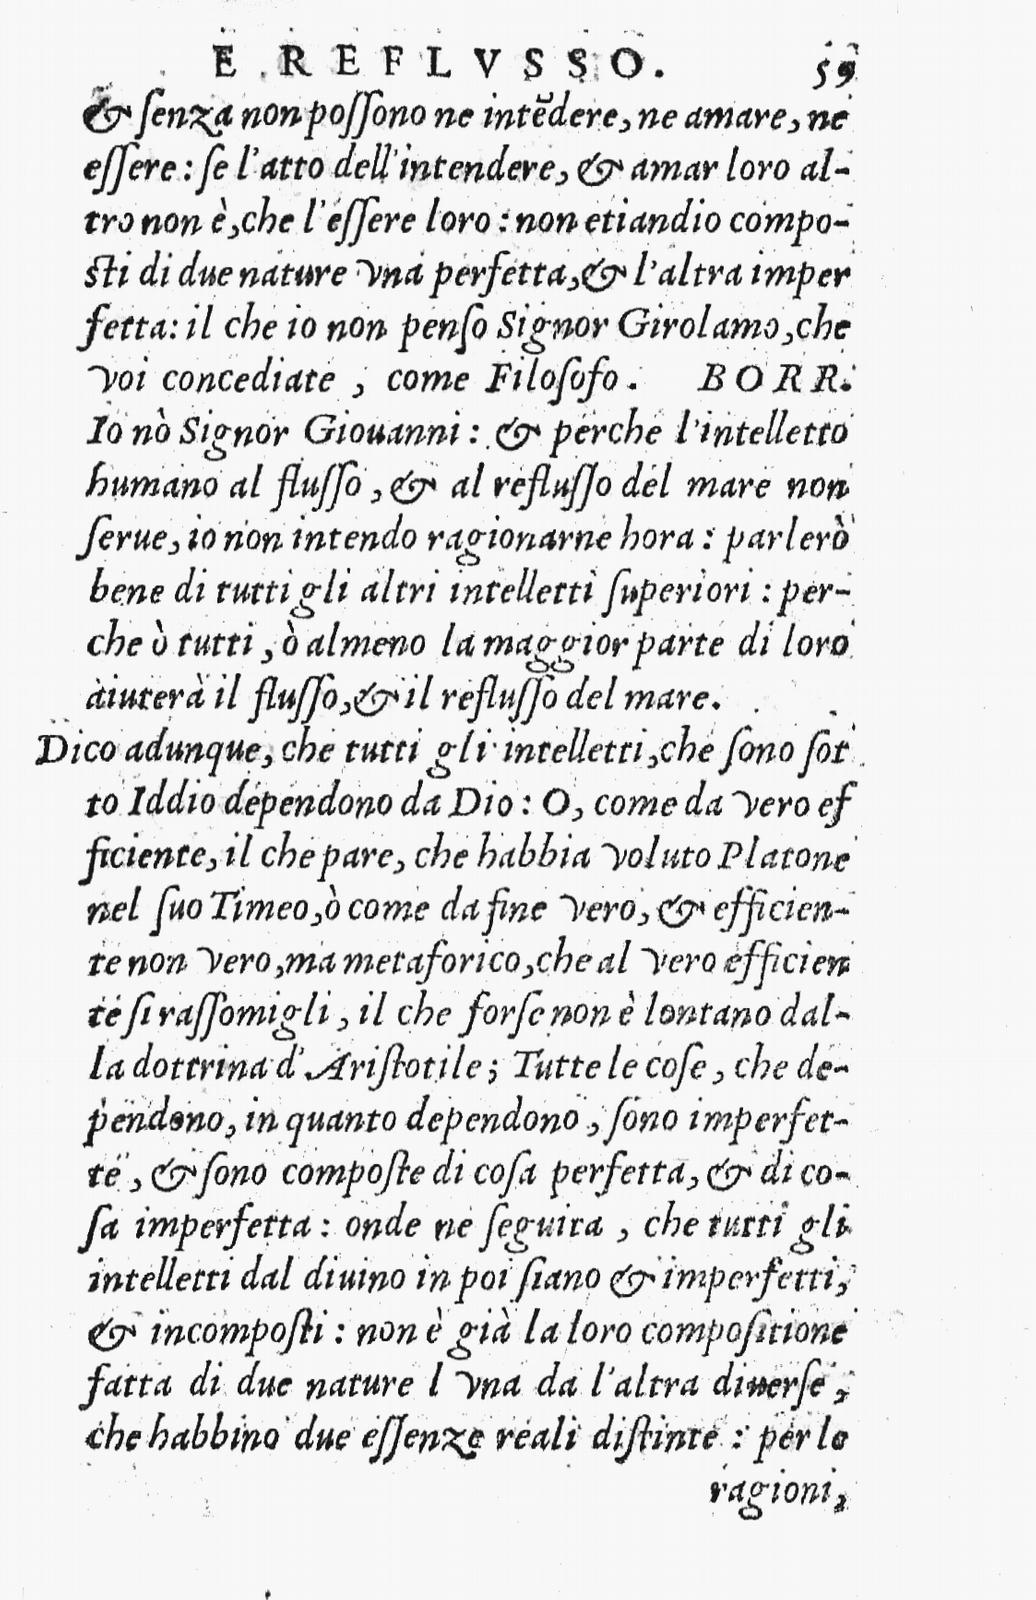 E REFLVSSO. 59
& ſenza non poſſono ne intēdere, ne amare, ne
eſſere: ſe l'atto dell'intendere, & amar loro al-
tro non è, che l'eſſere loro: non etiandio compo-
ſti di due nature vna perfetta, & l'altra imper
fetta: il che io non penſo Signor Girolamo, che
voi concediate, come Filoſofo. BORR.
Io nò Signor Giouanni: & perche l'intelletto
humano al fluſſo, & al refluſſo del mare non
ſerue, io non intendo ragionarne hora: parlerò
bene di tutti gli altri intelletti ſuperiori: per-
che ò tutti, ò almeno la maggior parte di loro
aiuterà il fluſſo, & il refluſſo del mare.
Dico adunque, che tutti gli intelletti, che ſono ſot
to Iddio dependono da Dio: O, come da vero ef
ficiente, il che pare, che habbia voluto Platone
nel ſuo Timeo, ò come da fine vero, & efficien-
te non vero, ma metaforico, che al vero efficien
te ſi raſſomigli, il che forſe non è lontano dal-
la dottrina d'Ariſtotile; Tutte le coſe, che de-
pendono, in quanto dependono, ſono imperfet-
te, & ſono compoſte di coſa perfetta, & di co-
ſa imperfetta: onde ne ſeguita, che tutti gli
intelletti dal diuino in poi ſiano & imperfetti,
& incompoſti: non è già la loro compoſitione
fatta di due nature l vna da l'altra diuerſe,
che habbino due eſſenze reali diſtinte: per le
ragioni,